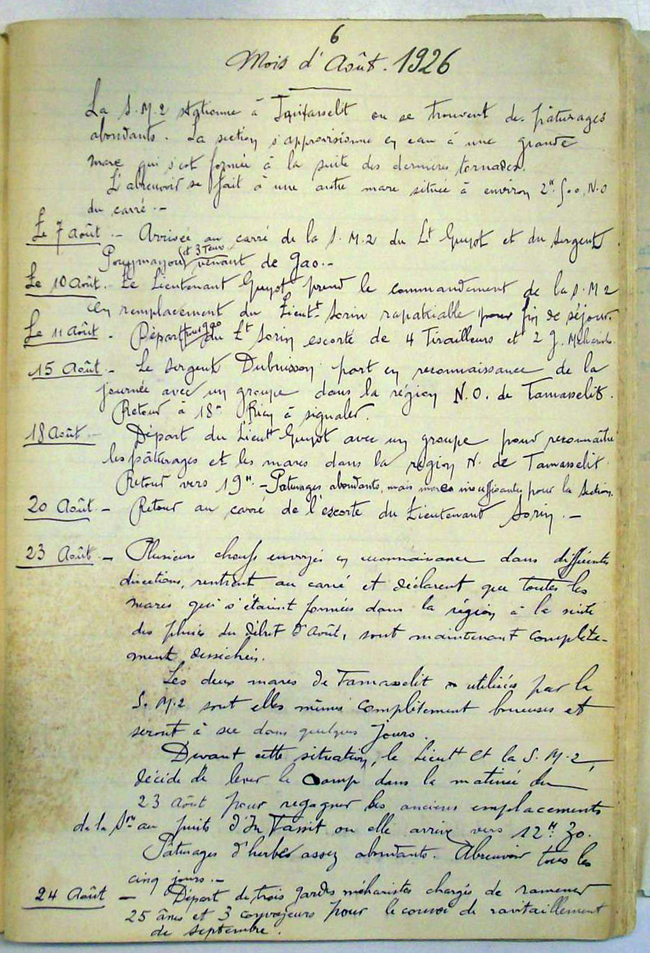 6
Mois d'Août. 1926
La S.M.2 stationne à ou se trouvent des pâturages
abondants. La section s'approvisionne en eau à une grande
mare qui s'est formée à la suite des dernières tornades.
L'abreuvoir se fait à une autre mare située à environ N.O
du carré.-
Le 7 Août.- Arrivée au carré de la S.M.2 du Lt Guyot et du Sergent
et 3 Tirs
venant de Gao.-
Le 10 Août. Le Lieutenant Guyot prend le commandement de la S.M2
en remplacement du Lieutt Sorin rapatriable pour fin de séjour.
Le 11 Août - Départ pour Gao du Lt Sorin escorte de 4 Tirailleurs et 2 g. Méharistes.
15 Août - Le Sergent Dubuisson part en reconnaissance de la
journée avec un groupe dans la région N.O. de Tamasselit.
Retour à 18H Rien à signaler.
18 Août - Départ du Lieutt Guyot avec un groupe pour reconnaître
les pâturages et les mares dans la région N. de Tamasselit.
Retour vers 19H.- Paturages abondants, mais mares insuffisantes pour la Section.
20 Août - Retour au carré de l'escorte du Lieutenant Sorin.-
23 Août - Plusieurs choufs envoyés en reconnaissance dans différentes
directions, rentrent au carré et déclarent que toutes les
mares qui s'étaient formées dans la région à la suite
des pluies du début d'Août, sont maintenant complète-
ment desséchées.
Les deux mares de Tamasselit utilisées par la
S.M.2 sont elles mêmes complètement boueuses et
seront à sec dans quelques jours.
Devant cette situation, le Lieutt Ct la S.M.2,
décide de lever le Camp dans la matinée du
23 Août pour regagner les anciens emplacements
de la Son au puits d'In Tassit ou elle arrive vers 12H 30.
Paturages d'herbes assez abondants. Abreuvoir tous les
cinq jours.-
24 Août - Départ de trois gardes méharistes chargés de ramener
25 ânes et 3 convoyeurs pour le convoi de ravitaillement
de septembre.